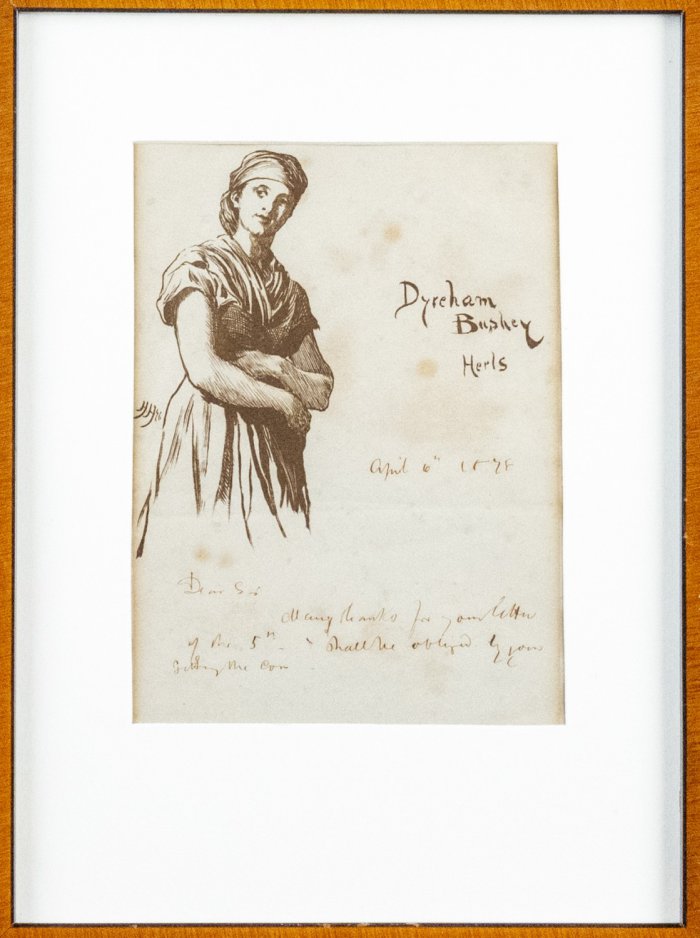 Dyreham
Bushey
Herts
HH
April 6th 1878
Dear Sir
Many thanks for your letter
of the 5th. I shall be obliged by your